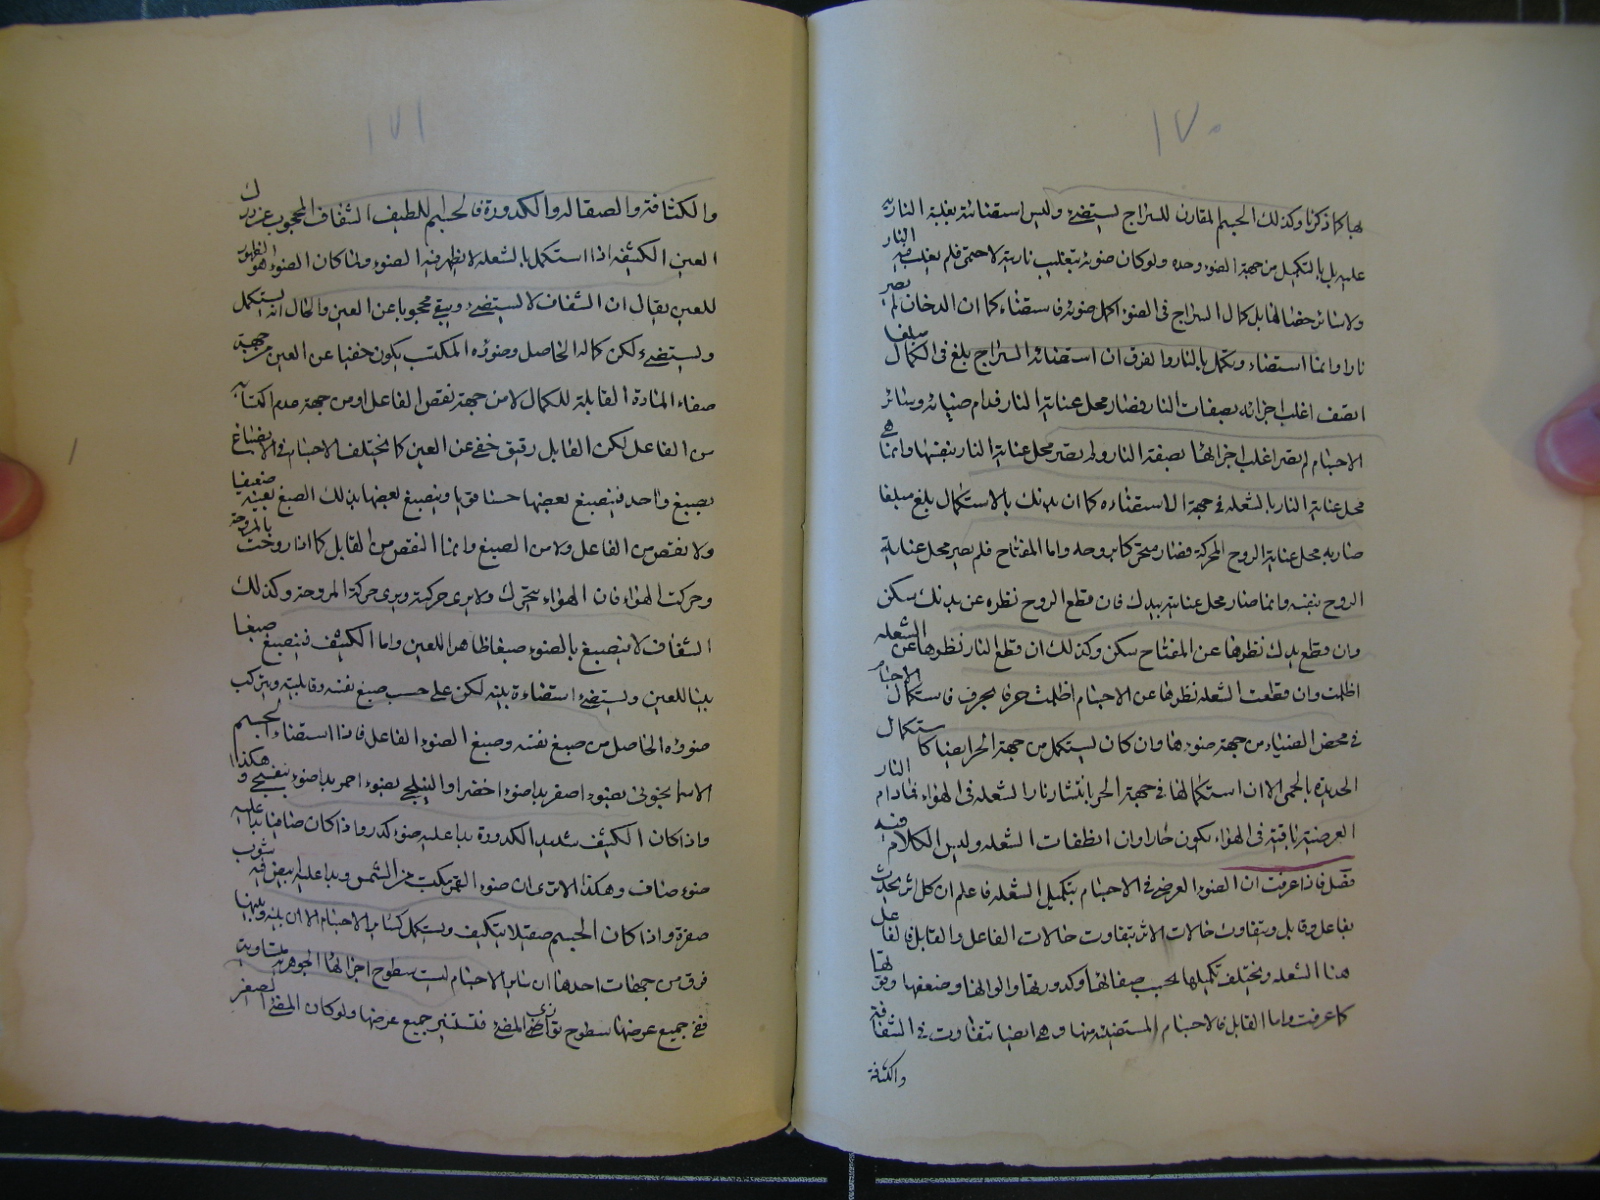 ١٧٠
بها كما ذكرنا وكذلك الجسم المقارن للسراج يستضيء وليس استضائته بغلبة النارية
عليه بل بالتكميل من جهة الضوء وحده ولو كان ضوئه بتغليب نارية لاحتمى فلم يغلب فيه النار
ولا سائر حضا لها بل كمال السراج في الضوء اكمل ضوئه فاستضاء كما ان الدخان لم يصر
نارا وانما استضاء وتكمل بالنار والفرق ان استضائة السراج بلغ في الكمال مبلغا
اتصف اغلب اجزائه بصفات النار فصار محل عناية النار فدام ضيائه وسائر
الاجسام لم يصر اغلب اجزائها بصفة النار ولم يصر محل عناية النار بنفسها وانما هي
محل عناية النار بالشعلة في جهة الاستضاءة كما ان بدنك بالاستكمال بلغ مبلغا
صار به محل عناية الروح المحركة فصار متحركا بروحه واما المفتاح فلم يصر محل عناية
الروح بنفسه وانما صار محل عنايته بيدك فان قطع الروح نظره عن بدنك سكن
وان قطع يدك نظرها عن المفتاح سكن وكذلك ان قطع النار نظرها عن الشعلة
اظلمت وان قطعت الشعلة نظرها عن الاجسام اظلمت حرفا بحرف فاستكمال الاجسام
في محض الضياء من جهة ضوءها وان كان يستكمل من جهة الحر ايضا كاستكمال
الحديدة بالحمى الا ان استكمالها في جهة الحر بانتشار نار الشعلة في الهواء فمادام النار
العرضية باقية في الهواء يكون حارا وان انطفات الشعلة وليس الكلام فيه
فصل فاذا عرفت ان الضوء العرضي في الاجسام بتكميل الشعلة فاعلم ان كل اثر يحدث
بفاعل وقابل ويتفاوت حالات الاثر بتفاوت حالات الفاعل والقابل فالفاعل
هنا الشعلة ويختلف تكميلها بحسب صفائها وكدورتها والوانها وضعفها وقوتها
كما عرفت واما القابل فالاجسام المستضيئة منها وهي ايضا تتفاوت في الشفافة
والكثافة
١٧١
والكثافة والصقالة والكدورة فالجسم اللطيف الشفاف المحجوب عن درك
العين الكثيفة اذا استكمل بالشعلة لا يظهر فيه الضوء ولما كان الضوء هو الظهور
للعين يقال ان الشفاف لا يستضيء ويبقى محجوبا عن العين والحال انه يستكمل
ويستضيء لكن كماله الحاصل وضوءه المكتسب يكون خفيا عن العين من جهة
صفاء المادة القابلة للكمال لا من جهة نقص الفاعل او من جهة عدم اكتسابه
من الفاعل لكن القابل رقيق خفي عن العين كما يختلف الاجسام في الانصباغ
بصبغ واحد فينصبغ بعضها حسنا قويا وينصبغ بعضها بذلك الصبغ بعينه ضعيفا
ولا نقص من الفاعل ولا من الصبغ وانما النقص من القابل كما اذا روحت بالمروحة
وحركت الهواء فان الهواء يتحرك ولا يرى حركته ويرى حركة المروحة وكذلك
الشفاف لا ينصبغ بالضوء صبغا ظاهرا للعين واما الكثيف فينصبغ صبغا
بينا للعين ويستضيء استضاءة بينة لكن على حسب صبغ نفسه وقابليته ويتركب
ضوؤه الحاصل من صبغ نفسه وصبغ الضوء الفاعل فاذا استضاء الجسم
الاسمانجوني بضوء اصفر بدا ضوء اخضر او النيلجي بضوء احمر بدا ضوء بنفسجي وهكذا
واذا كان الكثيف شديد الكدورة بدا عليه ضوء كدر واذا كان صافيا بدا عليه
ضوء صاف وهكذا الا ترى ان ضوء القمر مكتسب من الشمس وبدا عليه ابيض فيه شوب
صفرة واذا كان الجسم صقيلا يتكيف ويستكمل كسائر الاجسام الا ان بينه وبينها
فرق من جهات احدها ان سائر الاجسام ليست سطوح اجزائها الجوهرية متساوية
ففي جميع عرضها سطوح توازي المضيء فتستنير جميع عرضها ولو كان المضيء اصغر